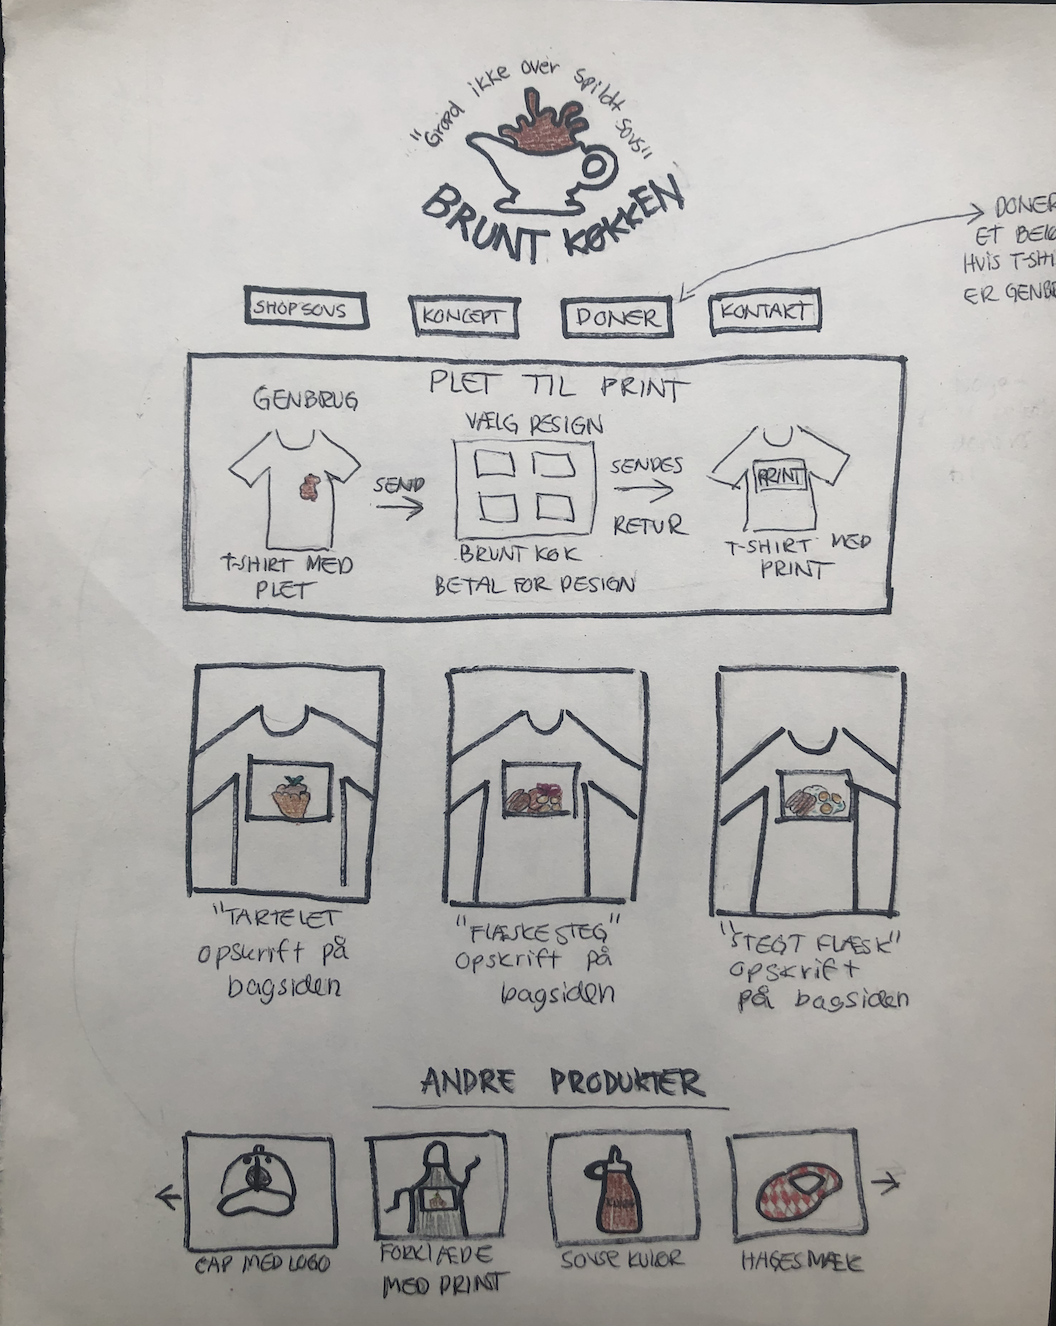 "Græd ikke over spildt sovs"
BRUNT KØKKEN
DONER
ET
HVIS
ER
SHOP SOVS
KONCEPT
DONER
KONTAKT
PLET TIL PRINT
GENBRUG
T-SHIRT MED
PLET
SEND
VÆLG DESIGN
BRUNT KØK
BETAL FOR DESIGN
SENDES
RETUR
PRINT
T-SHIRT MED
PRINT
"TARTELET
opskrift på
bagsiden
"FLÆSKESTEG"
opskrift på
bagsiden
"STEGT FLÆSK"
opskrift
på bagsiden
ANDRE PRODUKTER
CAP MED LOGO
FORKLÆDE
MED PRINT
SOVSE KULØR
HAGESMÆK